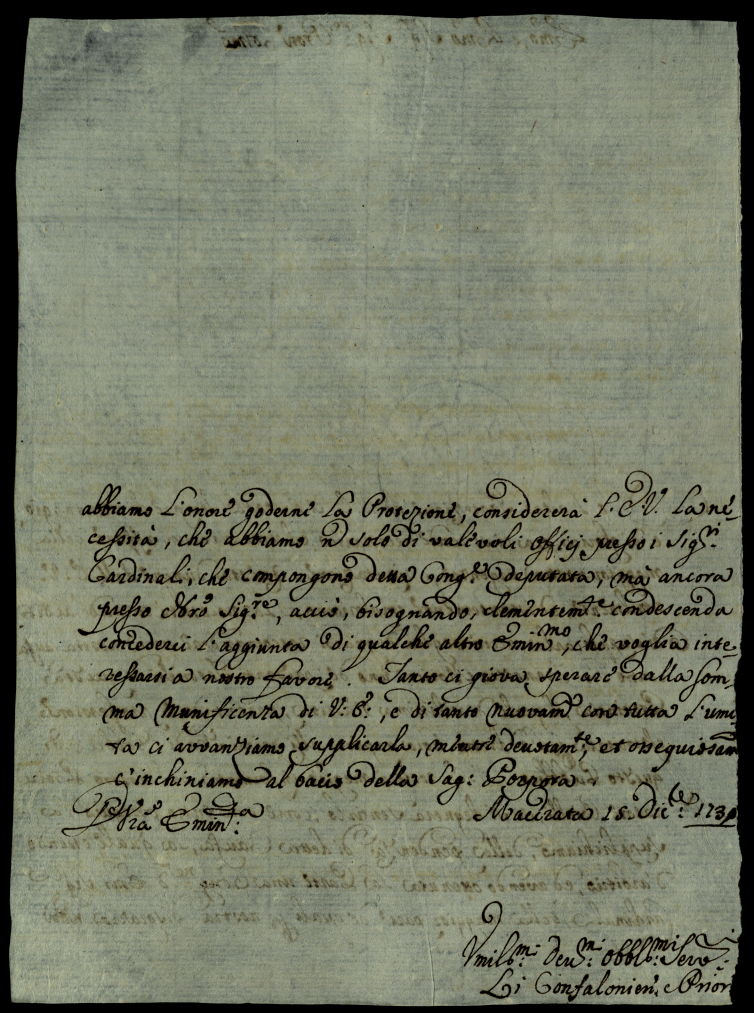 abbiamo l'onore goderne la Protezione, considererà l'E.V. la ne-
cessità, che abbiamo n solo di valevoli officj presso i Sigri
Cardinali, che compongono detta Congne deputata, mà ancora
presso Nro Sigre, acciò, bisognando, clementemte condescenda
concederci l'aggiunta di qualche altro Eminmo, che voglia inte-
ressarsi a nostro favore. Tanto ci giova sperare dalla som-
ma Munificenza di V: E:, e di tanto nuovamte con tutta l'umil-
tà ci avvanziamo supplicarla, mentre devotamte, et ossequiosam
c'inchiniamo al bacio della Sag: Porpora
Di Vra Eminza: Macerata 15. Dice: 173
Vmilmi: Devmi: Obblmi: Serv
Li Confalonier, e Prior